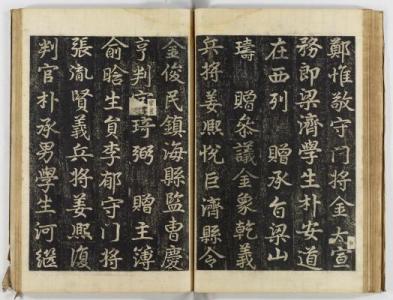 鄭惟敬守门将金太宣
務郎梁濟學生朴安道
在西列 贈承旨梁山
璹 贈叅議金象乾義
兵将姜熙悅巨濟縣令
金俊民鎮海縣監曺慶
亨判琦弼 贈主簿
俞晗生負李郁守门将
張胤賢義兵将姜熙復
判官朴承男學生河継